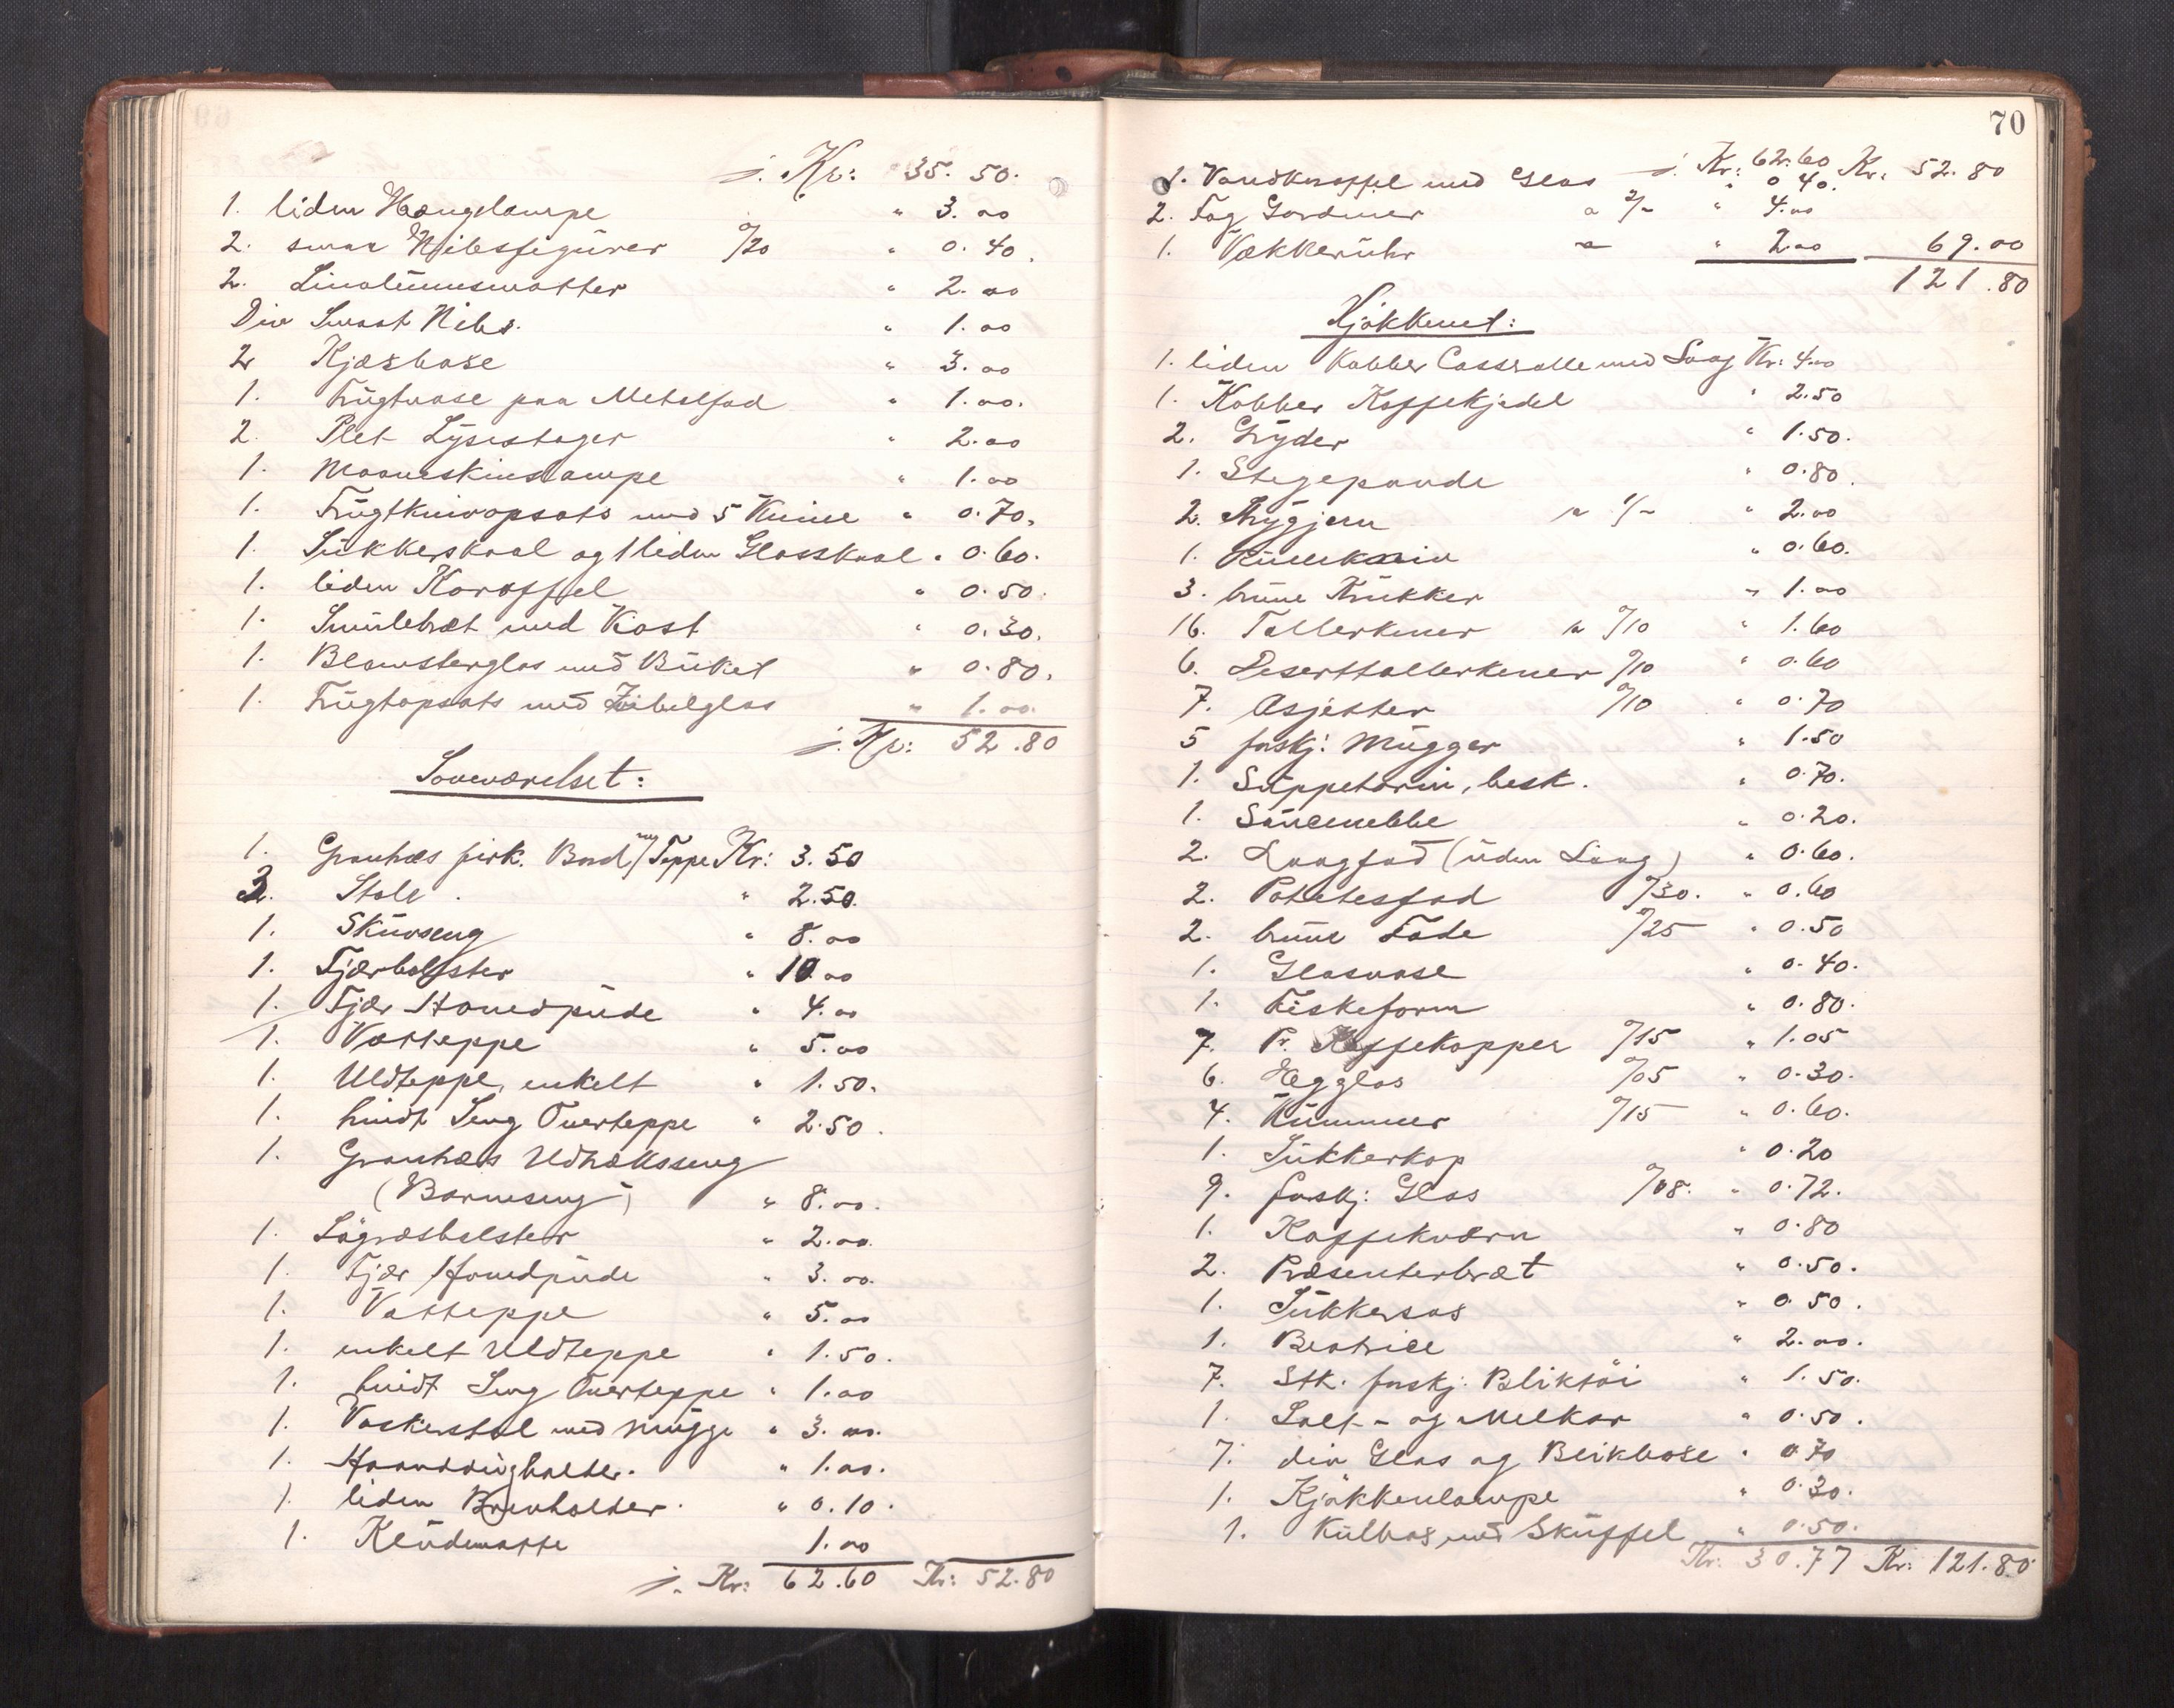 j. Kr: 35.50.
1. liden Hængelampe " 3.00
2. smaa Nibsfigürer a/20 " 0.40.
2. Linoliumsmatter " 2.00
Div Smaat Nibs. " 1.00
2 Kjæsbase " 3.00
1. Frügtvase paa Metalfad " 1.00.
2. Plet Lysestager " 2.00
1. Maaneskinslampe " 1.00
1. Frügtknivopsats med 5 Knive " 0.70.
1. Sükkerskaal og 1 liden Glasskaal " 0.60.
1. liden Karaffel " 0.50.
1. Smülebræt med Kost " 0.30.
1. Blomsterglas med Büket " 0.80.
1. Frügtopsats med Zirbelglas " 1.00.
j. Kr: 52.80
Soveværelset:
1. Granbæs firk. Bord m/ Teppe Kr: 3.50
3. Stole. " 2.50.
1. Sküvseng " 8.00
1. Fjærbolster " 10.00
1. Fjær Hovedpüde " 4.00
1. Vatteppe " 5.00
1. Uldteppe, enkelt " 1.50.
1. hvidt Seng Overteppe " 2.50.
1. Granbæs Udtræksseng
(Barneseng) " 8.00.
1. Søgræsbolster " 2.00.
1. Fjær Hovedpüde " 3.00.
1. Vatteppe " 5.00
1. enkelt Uldteppe " 1.50.
1. hvidt Seng Overteppe " 1.00
1. Vaskerstel med Mügge " 3.00.
1. Haanddugholder. " 1.00.
1. liden Brevholder. " 0.10.
1. Klüdematte 1.00
j. Kr: 62.60 Kr: 52.80
70
j. Kr: 62.60 Kr. 52.80
1. Vandkaraffel med Glas " 0 40.
2. Fag Gardiner a 2/- " 4.00
1. Vækkerühr a " 2.00 69.00
121.80
Kjøkkenet:
1. liden Kobber Casserolle med Laag Kr: 4.00
1. Kobber Kaffekjedel " 2.50
2. Gryder " 1.50.
1. Stegepande " 0.80.
2. Strygjern a 1/- " 2.00
1. " 0.60.
3. brüne Krükker " 1.00
16. Tallerkener a 0/10 " 1.60
6. Deserttallerkener 0/10 " 0.60
7. Asjetter 0/10 " 0.70
5 forskj: Mügger " 1.50
1. Süppeterin, besk. " 0.70.
1. Saücenebbe " 0.20.
2. Laagfad (üden Laag) " 0.60.
2. Potetesfad 0/30. " 0.60
2. brüne Fade 0/25 " 0.50
1. Glasvase " 0.40.
1. Fiskeform " 0.80.
7. Pr. Kaffekopper 0/15 " 1.05
6. Ægglas 0/05 " 0.30.
4. Kümmer 0/15 " 0.60.
1. Sükkerkop " 0.20
9. forskj: Glas 0/08. " 0.72.
1. Kaffekværn " 0.80
2. Præsenterbræt " 0.50.
1. Sükkersas " 0.50.
1. Beatrice " 2.00.
7. Stk. forskj. Bliktøi " 1.50.
1. Salt- og Melkar " 0.50.
7. div Glas og Blikbose " 0.70
1. Kjøkkenlampe " 0.30.
1. Külbox med Sküffel " 0.50.
Kr: 30.77 Kr: 121.80